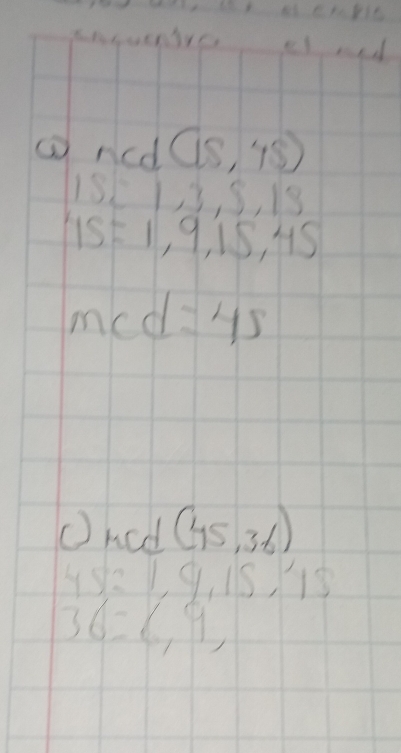 encuentra el mcd
a) mcd (15, 45)
15 = 1, 3, 5, 15
45 = 1, 9, 15, 45
mcd = 45
c) mcd (45, 36)
45 = 1, 9, 15, 45
36 = 6, 9,